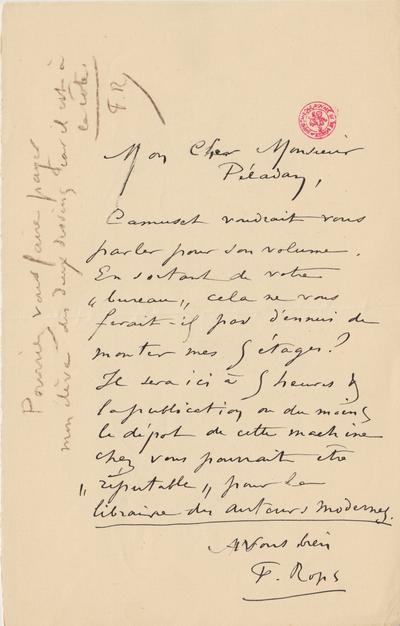 Mon Cher Monsieur
Péladan,
Camuset voudrait vous
parler pour son volume.
En sortant de votre
„bureau„ cela ne vous
ferait-il pas d'ennui de
monter mes 5 étages?
Il sera ici à 5 heures ½
la publication ou du moins
le dépot de cette machine
chez vous pourrait être
„réputable„ pour la
librairie des auteurs modernes.
A vous bien
F. Rops
Pourriez vous faire payer
mon élève des deux dessins, car il est à
la côte.
F R